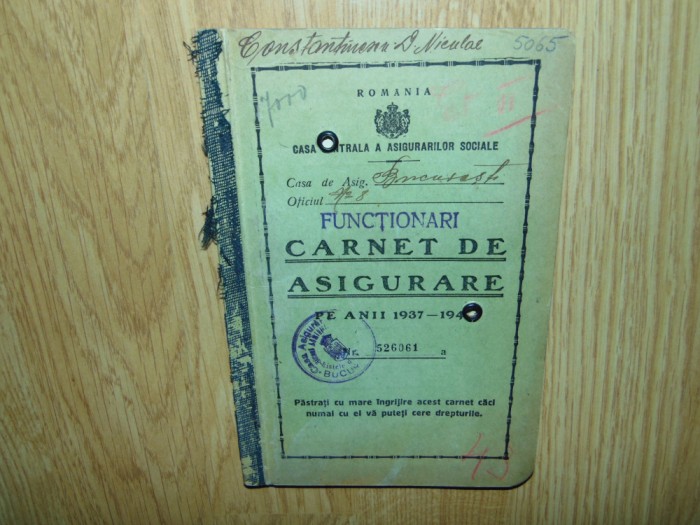 Constantinescu D. Niculae 5065
7000
ROMANIA
CASA CENTRALA A ASIGURARILOR SOCIALE
Casa de Asig. Bucuresti
Oficiul No 8
FUNCȚIONARI
CARNET DE
ASIGURARE
PE ANII 1937—194
Casa Asigurăr
BUCU
Nr. 526061 a
Păstrați cu mare îngrijire acest carnet căci
numai cu el vă puteți cere drepturile.
43